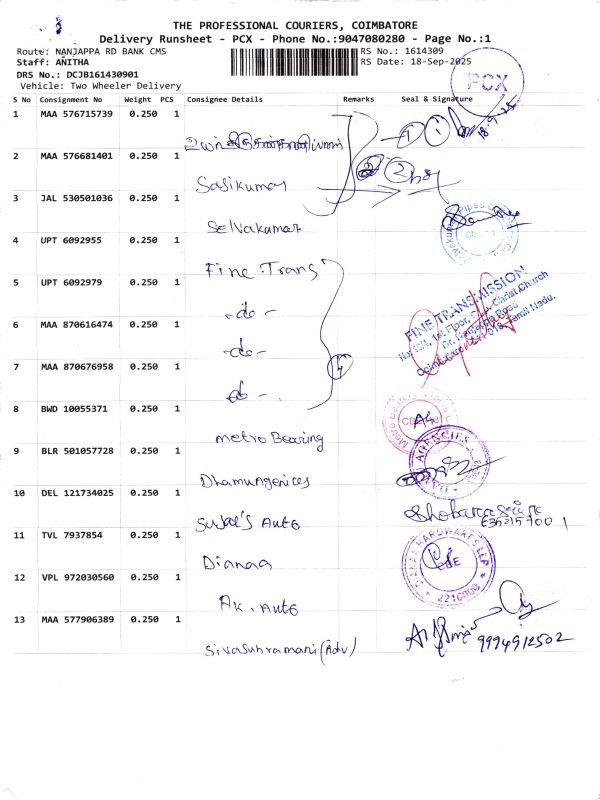 THE PROFESSIONAL COURIERS, COIMBATORE
Delivery Runsheet - PCX - Phone No.:9047080280 - Page No.:1
Route: NANJAPPA RD BANK CMS
RS No.: 1614309
Staff: ANITHA
RS Date: 18-Sep-2025
DRS No.: DCJB161430901
Vehicle: Two Wheeler Delivery
PCX
S No Consignment No Weight PCS Consignee Details Remarks Seal & Signature
1 MAA 576715739 0.250 1
18-9-25
2 MAA 576681401 0.250 1
Sasikumar
3 JAL 530501036 0.250 1
Selvakumar
4 UPT 6092955 0.250 1
Fine Trans
5 UPT 6092979 0.250 1
-do-
FINE TRANSMISSION
6 MAA 870616474 0.250 1
-do-
7 MAA 870676958 0.250 1
do -
4
8 BWD 10055371 0.250 1
metro Bearing
9 BLR 501057728 0.250 1
AGENCIES
10 DEL 121734025 0.250 1
Auto
11 TVL 7937854 0.250 1
Dianaa
HARDWARES LLP
12 VPL 972030560 0.250 1
AK. Auto
13 MAA 577906389 0.250 1
Sivasubramani (Adv)
9994912502